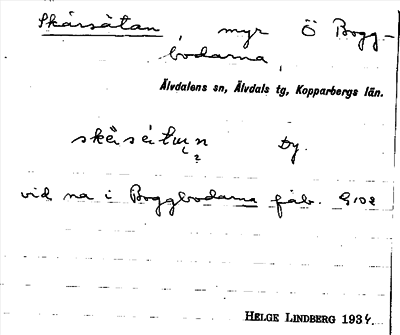 Skårsåtan, myr Ö Bogg-
bodarna,
Älvdalens sn, Älvdals tg, Kopparbergs län.
Dy.
vid na i Boggbodarna fäb.
HELGE LINDBERG 1934.